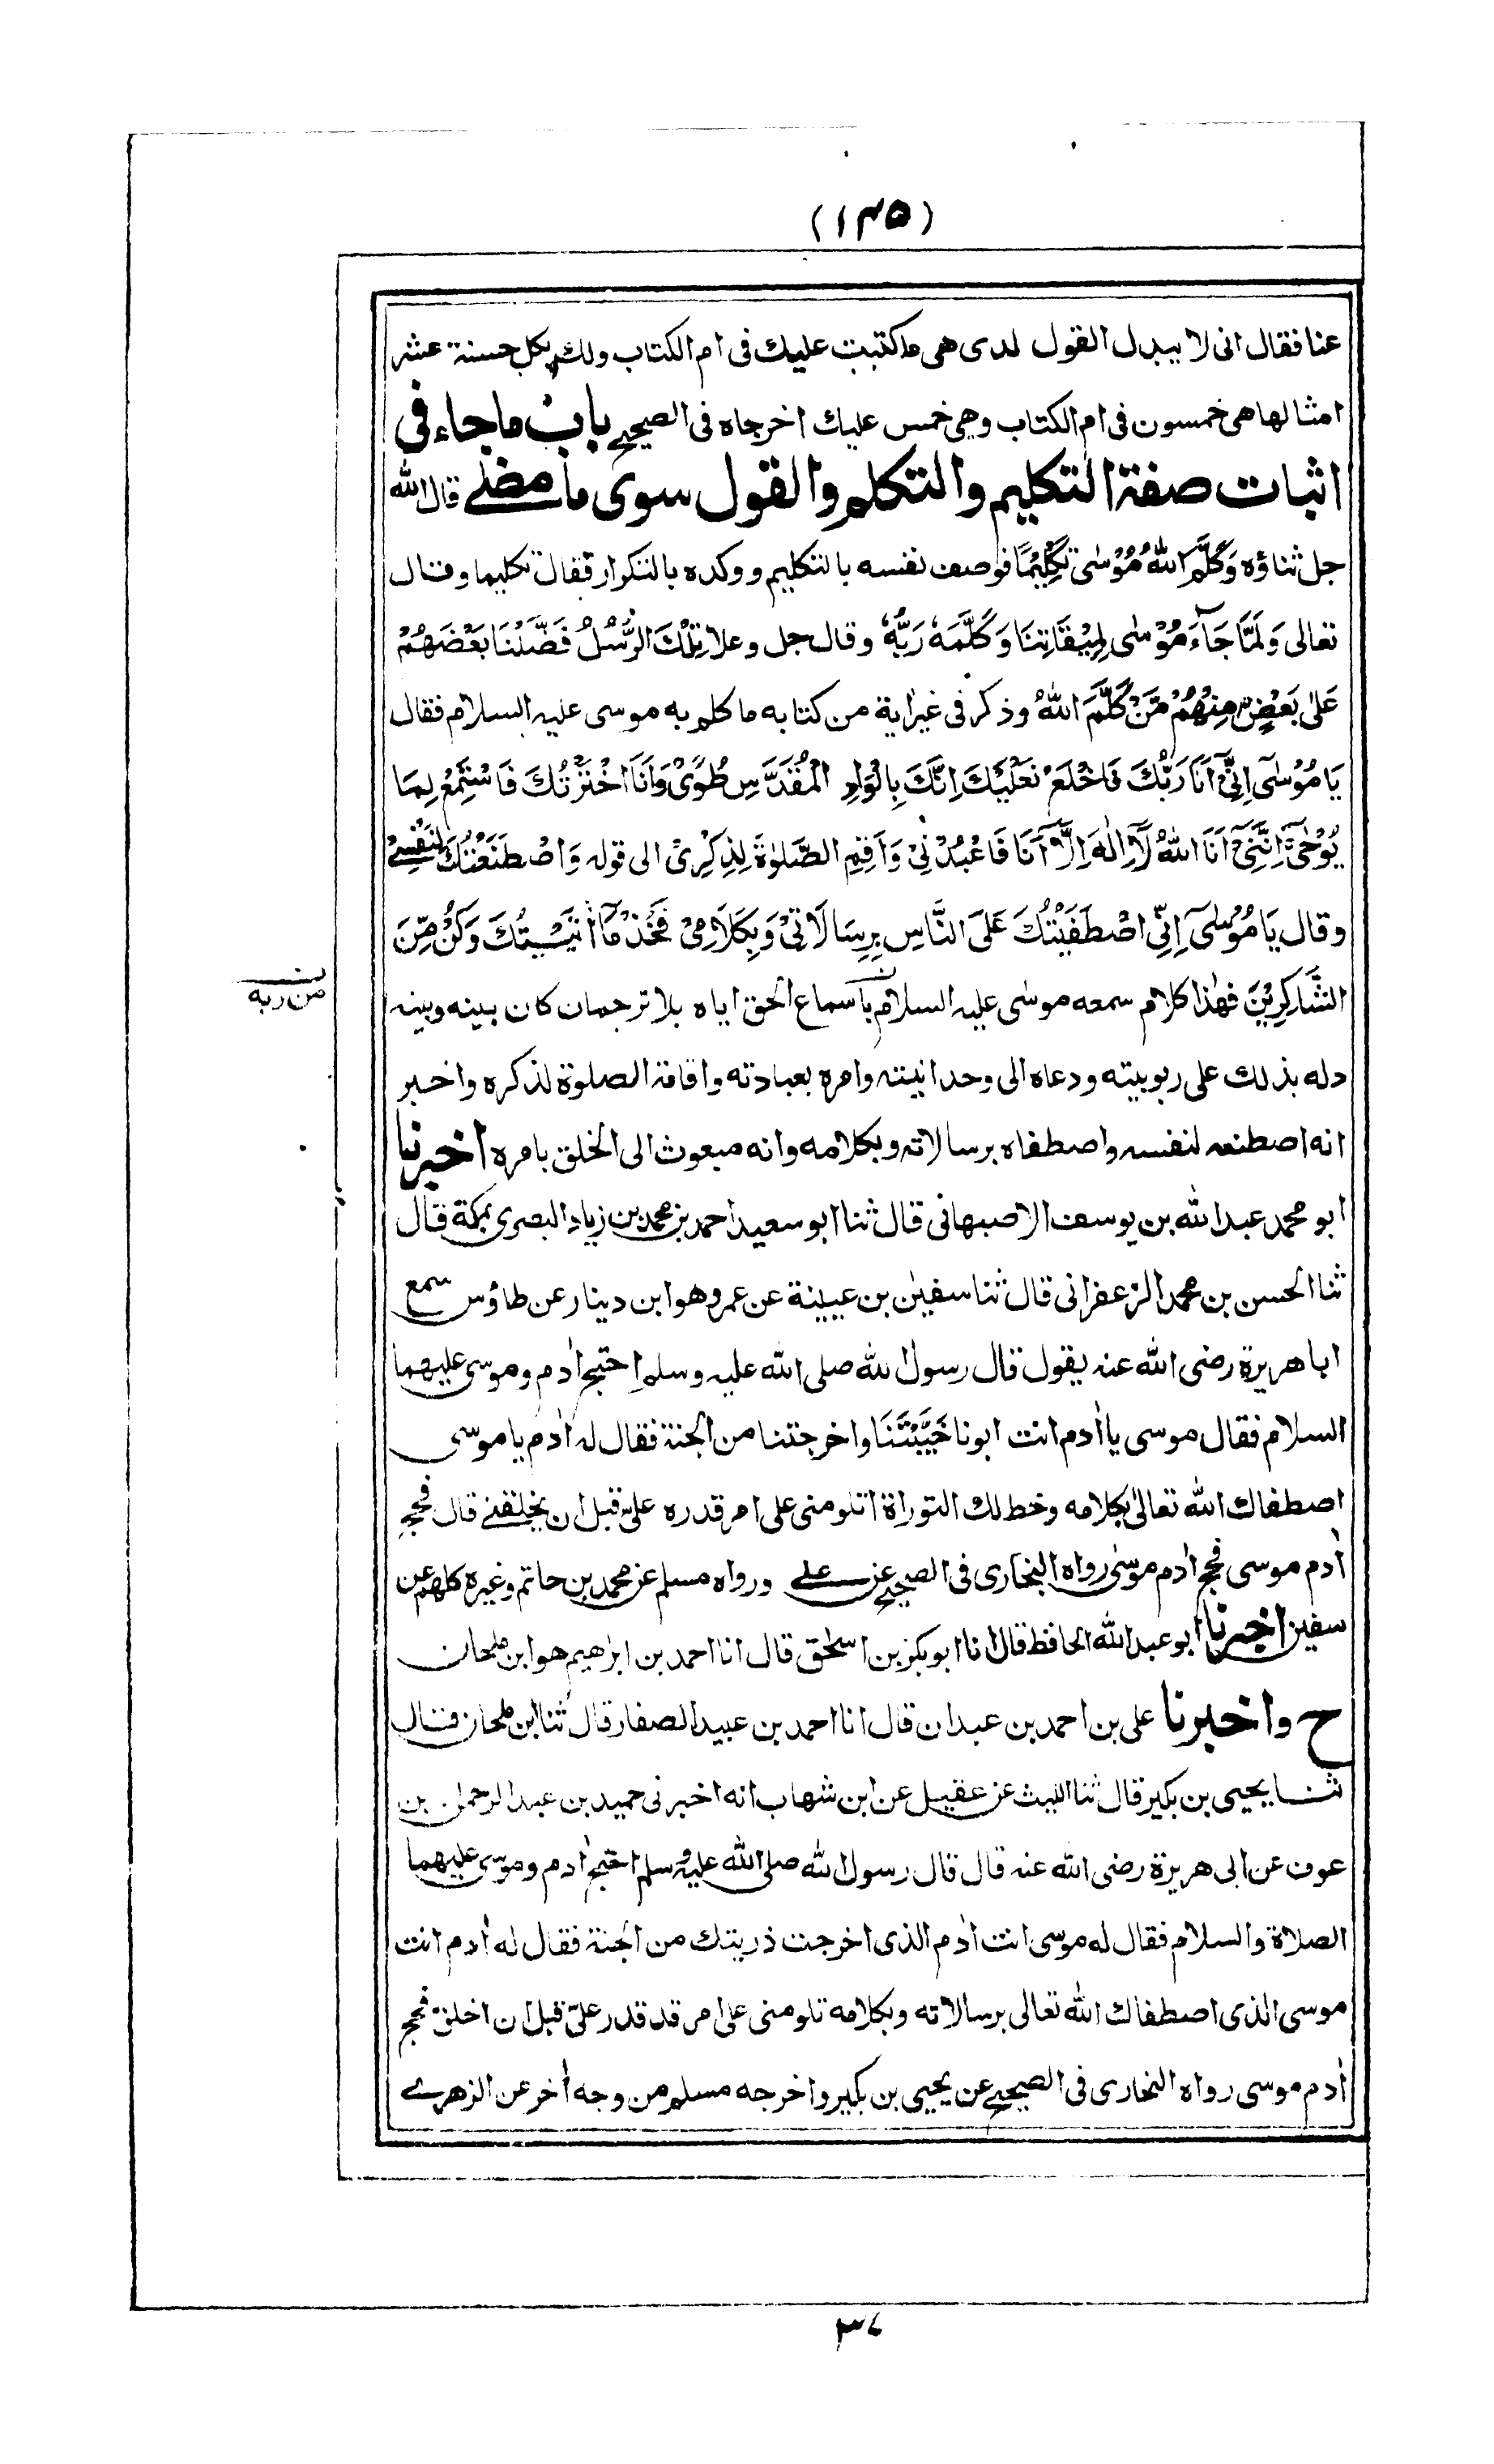 (١٣٥)
عنا فقال انى لا يبدل القول لدى هى ما كتبت عليك فى ام الكتاب ولك بكل حسنة عشر
امثالها هى خمسون فى ام الكتاب وهى خمس عليك اخرجاه فى الصحيح باب ما جاء فى
اثبات صفة التكليم والتكلم والقول سوى ما مضى قال الله
جل ثناؤه وَكَلَّمَ اللهُ مُوْسٰى تَكْلِيْمًا فوصف نفسه بالتكليم ووكده بالتكرار فقال تكليما وقال
تعالى وَلَمَّا جَآءَ مُوْسٰى لِمِيْقَاتِنَا وَكَلَّمَهٗ رَبُّهٗ وقال جل وعلا تِلْكَ الرُّسُلُ فَضَّلْنَا بَعْضَهُمْ
عَلٰى بَعْضٍ مِنْهُمْ مَّنْ كَلَّمَ اللهُ وذكر فى غير اية من كتابه ما كلم به موسى عليه السلام فقال
يَا مُوْسٰٓى اِنِّيْٓ اَنَا رَبُّكَ فَاخْلَعْ نَعْلَيْكَ اِنَّكَ بِالْوَادِ الْمُقَدَّسِ طُوًى وَاَنَا اخْتَرْتُكَ فَاسْتَمِعْ لِمَا
يُوْحٰى اِنَّنِيْٓ اَنَا اللهُ لَآ اِلٰهَ اِلَّآ اَنَا فَاعْبُدْنِيْ وَاَقِمِ الصَّلٰوةَ لِذِكْرِيْ الى قوله وَاصْطَنَعْتُكَ لِنَفْسِيْ
وقال يَا مُوْسٰٓى اِنِّي اصْطَفَيْتُكَ عَلَى النَّاسِ بِرِسَالَاتِيْ وَبِكَلَامِيْ فَخُذْ مَآ اٰتَيْتُكَ وَكُنْ مِّنَ
الشَّاكِرِيْنَ فهذا كلام سمعه موسى عليه السلام باسماع الحق اياه بلا ترجمان كان بينه وبينه
من ربه
دله بذلك على ربوبيته ودعاه الى وحدانيته وامره بعبادته واقامة الصلوة لذكره واخبر
انه اصطنعه لنفسه واصطفاه برسالاته وبكلامه وانه مبعوث الى الخلق بامره اخبرنا
ابو محمد عبد الله بن يوسف الاصبهانى قال ثنا ابو سعيد احمد بن محمد بن زياد البصرى بمكة قال
ثنا الحسن بن محمد الزعفرانى قال ثنا سفين بن عيينة عن عمرو هو ابن دينار عن طاؤس سمع
ابا هريرة رضى الله عنه يقول قال رسول الله صلى الله عليه وسلم احتج اٰدم وموسى عليهما
السلام فقال موسى يا اٰدم انت ابونا خَيَّبْتَنَا واخرجتنا من الجنة فقال له اٰدم يا موسى
اصطفاك الله تعالى بكلامه وخط لك التوراة اتلومنى على امر قدره علىّ قبل ان يخلقنى قال فحج
اٰدم موسى فحج اٰدم موسى رواه البخارى فى الصحيح عن على ورواه مسلم عن محمد بن حاتم وغيره كلهم عن
سفين اخبرنا ابو عبد الله الحافظ قال انا ابو بكر بن اسحٰق قال انا احمد بن ابرهيم هو ابن ملحان
ح واخبرنا على بن احمد بن عبدان قال انا احمد بن عبيد الصفار قال ثنا ابن ملحان قال
ثنا يحيى بن بكير قال ثنا الليث عن عقيل عن ابن شهاب انه اخبرنى حميد بن عبد الرحمٰن بن
عوف عن ابى هريرة رضى الله عنه قال قال رسول الله صلى الله عليه وسلم احتج اٰدم وموسى عليهما
الصلاة والسلام فقال له موسى انت اٰدم الذى اخرجت ذريتك من الجنة فقال له اٰدم انت
موسى الذى اصطفاك الله تعالى برسالاته وبكلامه تلومنى على امر قد قدر علىّ قبل ان اخلق فحج
اٰدم موسى رواه البخارى فى الصحيح عن يحيى بن بكير واخرجه مسلم من وجه اٰخر عن الزهرى
٣٤